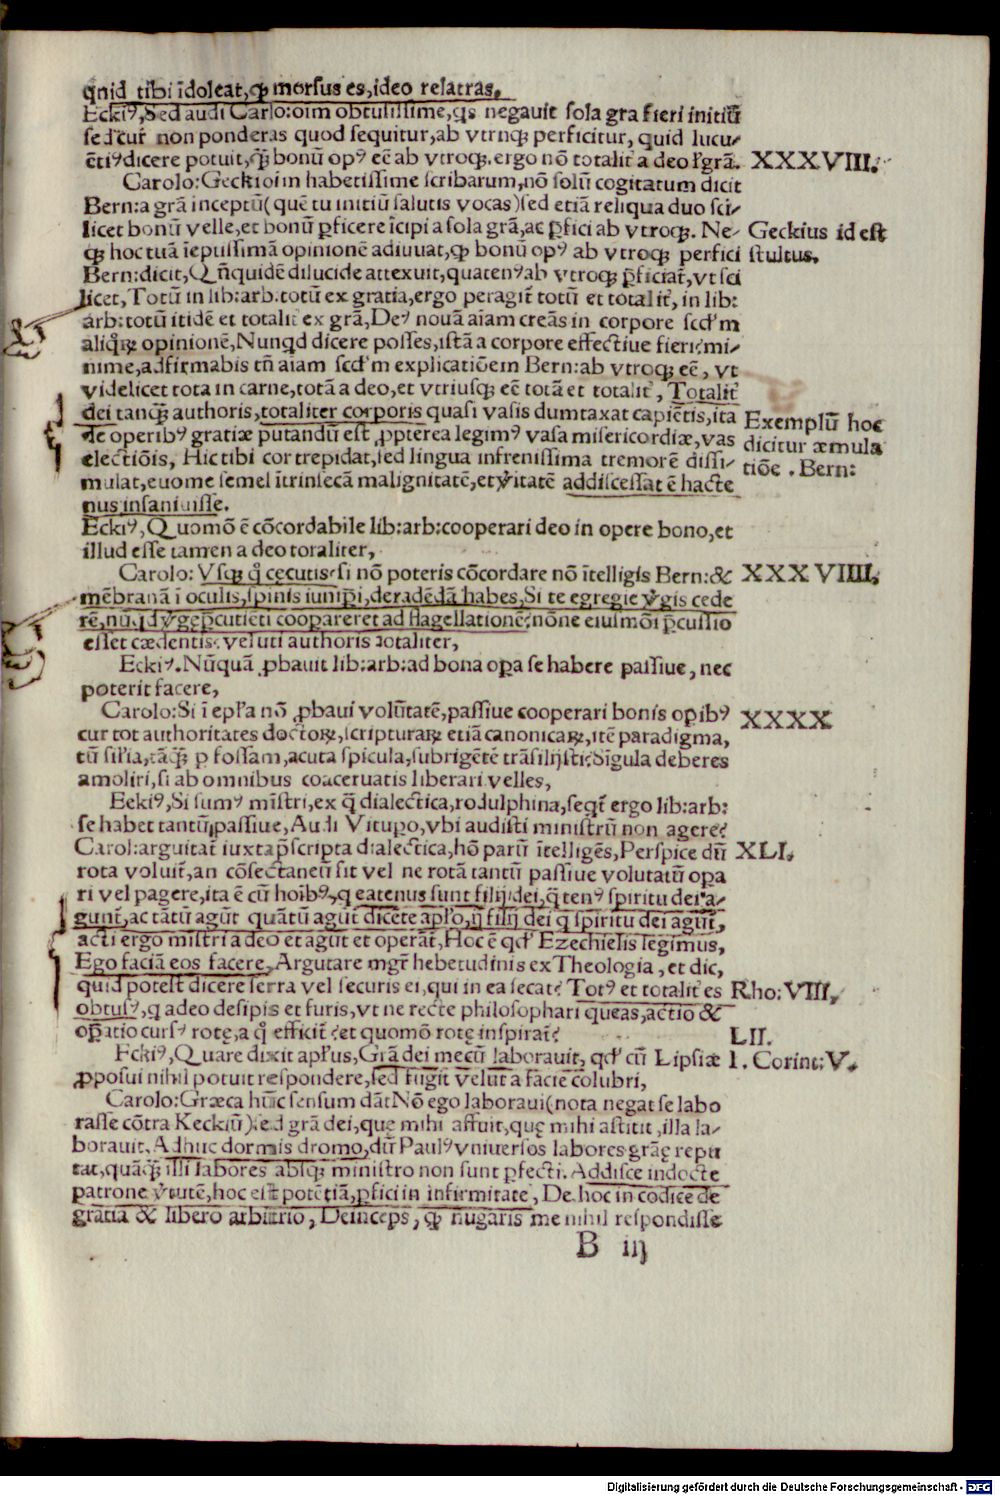 quid tibi īdoleat, ꝙ morsus es, ideo relatras.
Eckiꝰ, Sed audi Carlo: oīm obtusissime, qs negauit sola gra fieri initiū
sed cur non ponderas quod sequitur, ab vtrꝙ perficitur, quid lucu-
ētiꝰ dicere potuit, ꝙ̄ bonū opꝰ eē ab vtroꝙ, ergo nō totalit̄ a deo grā. XXXVIII.
Carolo: Geckioi in habetissime scribarum, nō solū cogitatum dicit
Bern: a grā inceptū (quē tu initiū salutis vocas) sed etiā reliqua duo sci-
licet bonū velle, et bonū ꝑficere īcipi a sola grā, ac ꝑfici ab vtroꝙ. Ne- Geckius id est
ꝙ hoc tuā īepuissimā opinionē adiuuat, ꝙ bonū opꝰ ab vtroꝙ perfici stultus.
Bern: dicit, Qn̄quidē dilucide attexuit, quatenꝰ ab vtroꝙ ꝑficiat̄, vt sci
licet, Totū in lib: arb. totū ex gratia, ergo peragit̄ totū et totalit̄, in lib:
arb: totū itidē et totalit̄ ex grā, Deꝰ nouā aīam creās in corpore scd'm
aliꝙꝝ opinionē, Nunqd dicere posses, istā a corpore effectiue fieri? mi-
nime, adfirmabis tn̄ aiam scd'm explicatiōem Bern: ab vtroꝙ eē, vt
videlicet tota in carne, totā a deo, et vtriusꝙ eē totā et totalit̄, Totalit̄
dei tanꝙ̄ authoris, totaliter corporis quasi vasis dumtaxat capiētis, ita Exemplū hoc
de operibꝰ gratiæ putandū est, ꝓpterea legimꝰ vasa misericordiæ, vas dicitur æmula
electiōis, Hic tibi cor trepidat, sed lingua infrenissima tremorē dissi- tiōe. Bern:
mulat, euome semel ītrinsecā malignitatē, et v̄itatē addiscessat ē hacte
nus insaniuisse.
Eckiꝰ, Quomō ē cōcordabile lib: arb: cooperari deo in opere bono, et
illud esse tamen a deo totaliter,
Carolo: Vsꝙ q̄ cęcutis? si nō poteris cōcordare nō ītelligis Bern: & XXXVIIII.
mēbranā ī oculis, spinis iunipi, deradēdā habes, Si te egregie v̄gis cede
rē, nūqd v̄ge ꝑcutiēti coopareret ad flagellationē? nōne eiusmōi ꝑcussio
esset cædentis? veluti authoris totaliter,
Eckiꝰ. Nūquā ꝓbauit lib: arb: ad bona oꝑa se habere passiue, nec
poterit facere,
Carolo: Si ī epl'a nō ꝓbaui volūtatē, passiue cooperari bonis oꝑibꝰ XXXX
cur tot authoritates doctoꝝ, scripturaꝝ etiā canonicaꝝ, itē paradigma,
tū sil'ia, tāꝙ̄ ꝑ fossam, acuta spicula, subrigētē trāsilijsti? Sīgula deberes
amoliri, si ab omnibus coaceruatis liberari velles,
Eckiꝰ, Si sumꝰ mīstri, ex q̄ dialectica, rodulphina, seqr̄ ergo lib: arb:
se habet tantū passiue, Audi Vitupo, vbi audisti ministrū non agere?
Carol: arguitat̄ iuxta p̄scripta dialectica, hō parū ītelligēs, Perspice dū XLI.
rota voluit̄, an cōsectaneū sit vel ne rotā tantū passiue volutatū oꝑa
ri vel pagere, ita ē cū hoībꝰ, q eatenus sunt filij dei, q̄tenꝰ spiritu dei a-
gunt̄, ac tātū agūt quātū agūt̄ dicēte apl'o, ij filij dei q spiritu dei agūt̄,
acti ergo mīstri a deo et agūt et operāt̄, Hoc ē qd' Ezechielis legimus,
Ego faciā eos facere, Argutare mgr̄ hebetudinis ex Theologia, et dic,
quid potest dicere serra vel securis ei, qui in ea secat? Totꝰ et totalit̄ es Rho: VIII,
obtusꝰ, q adeo desipis et furis, vt ne recte philosophari queas, actio &
oꝑatio cursꝰ rotę, a q̄ efficit̄? et quomō rotę inspirat̄? LII.
Eckiꝰ, Quare dixit apl'us, Grā dei mecū laborauit, qd' cū Lipsiæ 1. Corint: V.
ꝓposui nihil potuit respondere, sed fugit velut a facie colubri,
Carolo: Græca hūc sensum dāt Nō ego laboraui (nota negat se labo
rasse cōtra Keckiū) sed grā dei, quę mihi affuit, quę mihi astitit, illa la-
borauit. Adhuc dormis dromo, dū Paulꝰ vniuersos labores grāę repu
tat, quāꝙ̄ illi labores absꝙ ministro non sunt ꝑfecti. Addisce indocte
patrone v̄tutē, hoc est potētiā, ꝑfici in infirmitate, De hoc in codice de
gratia & libero arbitrio, Deinceps, ꝙ nugaris me nihil respondisse
B iij
Digitalisierung gefördert durch die Deutsche Forschungsgemeinschaft - DFG